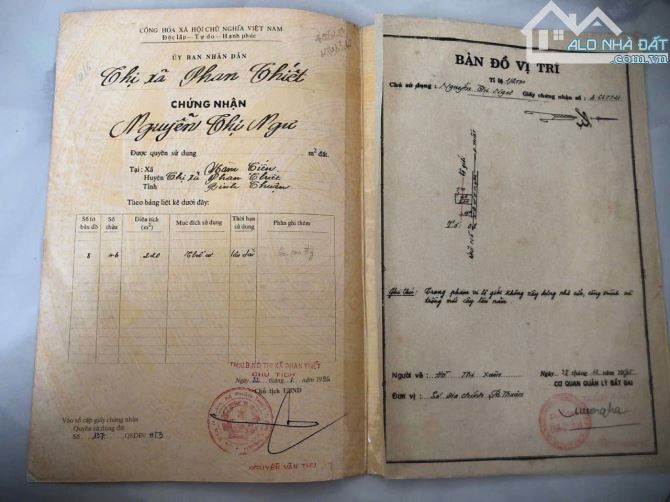 CỘNG HÒA XÃ HỘI CHỦ NGHĨA VIỆT NAM
Độc lập - Tự do - Hạnh phúc
ỦY BAN NHÂN DÂN
Thị xã Phan Thiết
CHỨNG NHẬN
Nguyễn Thị Ngư
Được quyền sử dụng m² đất.
Tại : Xã Hàm Tiến
Huyện Thị xã Phan Thiết
Tỉnh Bình Thuận
Theo bảng liệt kê dưới đây:
Số tờ bản đồ
Số thửa
Diện tích (m²)
Mục đích sử dụng
Thời hạn sử dụng
Phần ghi thêm
8 46 220 Thổ cư lâu dài
TM/U.B.N.D THỊ XÃ PHAN THIẾT
CHỦ TỊCH
Ngày 22 tháng 1 năm 1996
Chủ tịch UBND
NGUYỄN VĂN THU
Vào sổ cấp giấy chứng nhận
Quyền sử dụng đất
Số 137 QSDĐ/ HT3
ALO NHÀ ĐẤT
.com.vn
BẢN ĐỒ VỊ TRÍ
Tỉ lệ
Chủ sử dụng : Nguyễn Thị Ngư Giấy chứng nhận số :
Ghi chú: Trong phạm vi lộ giới không xây dựng nhà cửa, công trình và
trồng mới cây lâu năm
Người vẽ : Hồ Thị Xuân
Ngày
CƠ QUAN QUẢN LÝ ĐẤT ĐAI
Đơn vị : Sở Địa chính B. Thuận